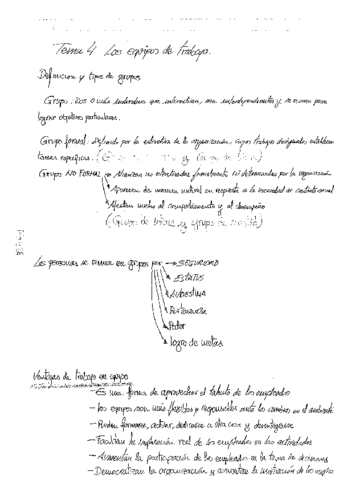 Tema 4 Los equipos de trabajo.
Definicion y tipos de grupos
Grupo: Dos o más individuos que interactuan, son interdependientes y se unen para
lograr objetivos particulares.
Grupo formal: Definido por la estructura de la organización, cuyos trabajos designados establecen
tareas específicas. (
Grupo NO FORMAL Alianzas no estructuradas formalmente ni determinadas por la organización
Aparecen de manera natural en respuesta a la necesidad de contacto social
Afectan mucho al comportamiento y al desempeño
(Grupo de interes y grupo de amistad)
Las personas se reunen en grupos por SEGURIDAD
ESTATUS
Autoestima
Pertenencia
Poder
logro de metas
Ventajas de trabajo en equipo
- Es una forma de aprovechar el talento de los empleados
- Los equipos son más flexibles y responsables ante los cambios en el ambiente
- Pueden formarse, activar, dedicarse a otra cosa y desintegrarse
- Facilitan la implicación real de los empleados en las actividades
- Aumentan la participación de los empleados en la toma de decisiones
- Democratizan la organización y aumentan la motivación de los